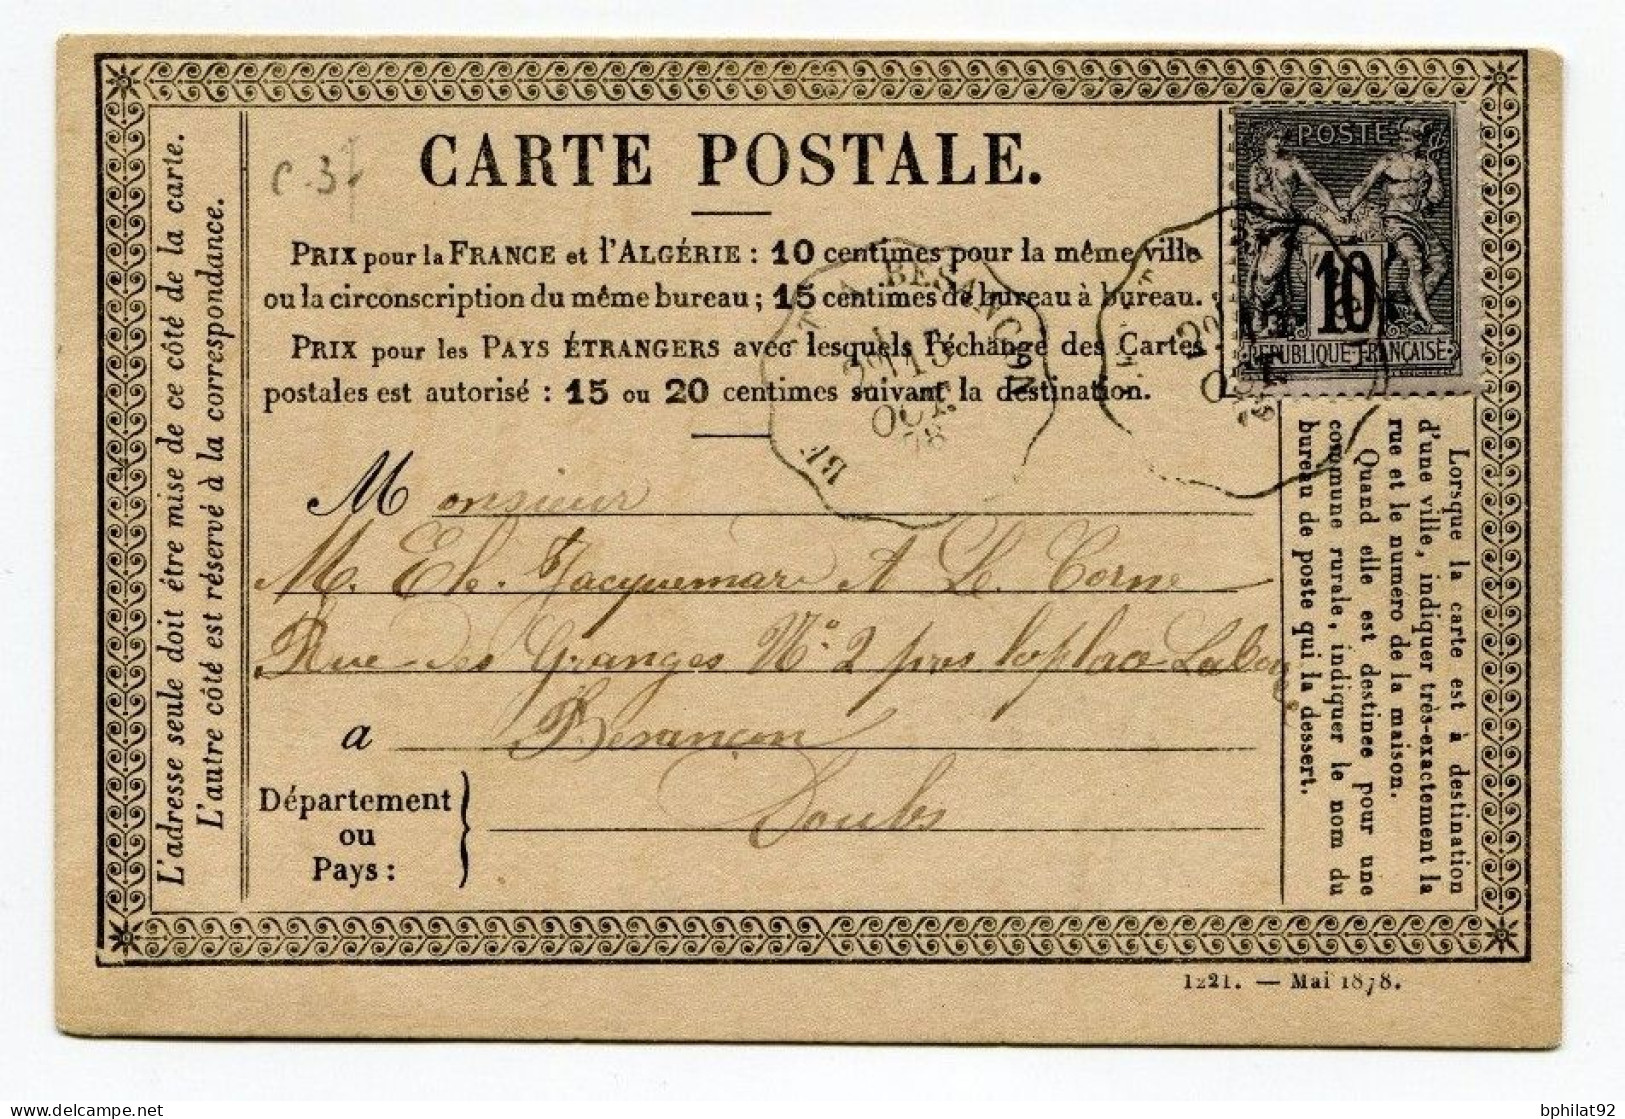 CARTE POSTALE.
c. 37
PRIX pour la FRANCE et l'ALGÉRIE : 10 centimes pour la même ville
ou la circonscription du même bureau ; 15 centimes de bureau à bureau.
PRIX pour les PAYS ÉTRANGERS avec lesquels l'échange des Cartes
postales est autorisé : 15 ou 20 centimes suivant la destination.
POSTE
10
REPUBLIQUE FRANÇAISE
A BESANCON
15
OCT.
78
Monsieur
M. Ele. Jacquemard A Le Corne
Rue des Granges No 2 pres la place Labour
a Besançon
Département
ou
Pays :
Doubs
L'adresse seule doit être mise de ce côté de la carte.
L'autre côté est réservé à la correspondance.
Lorsque la carte est à destination
d'une ville, indiquer très-exactement la
rue et le numéro de la maison.
Quand elle est destinée pour une
commune rurale, indiquer le nom du
bureau de poste qui la dessert.
1221. — Mai 1878.
delcampe.net
bphilat92